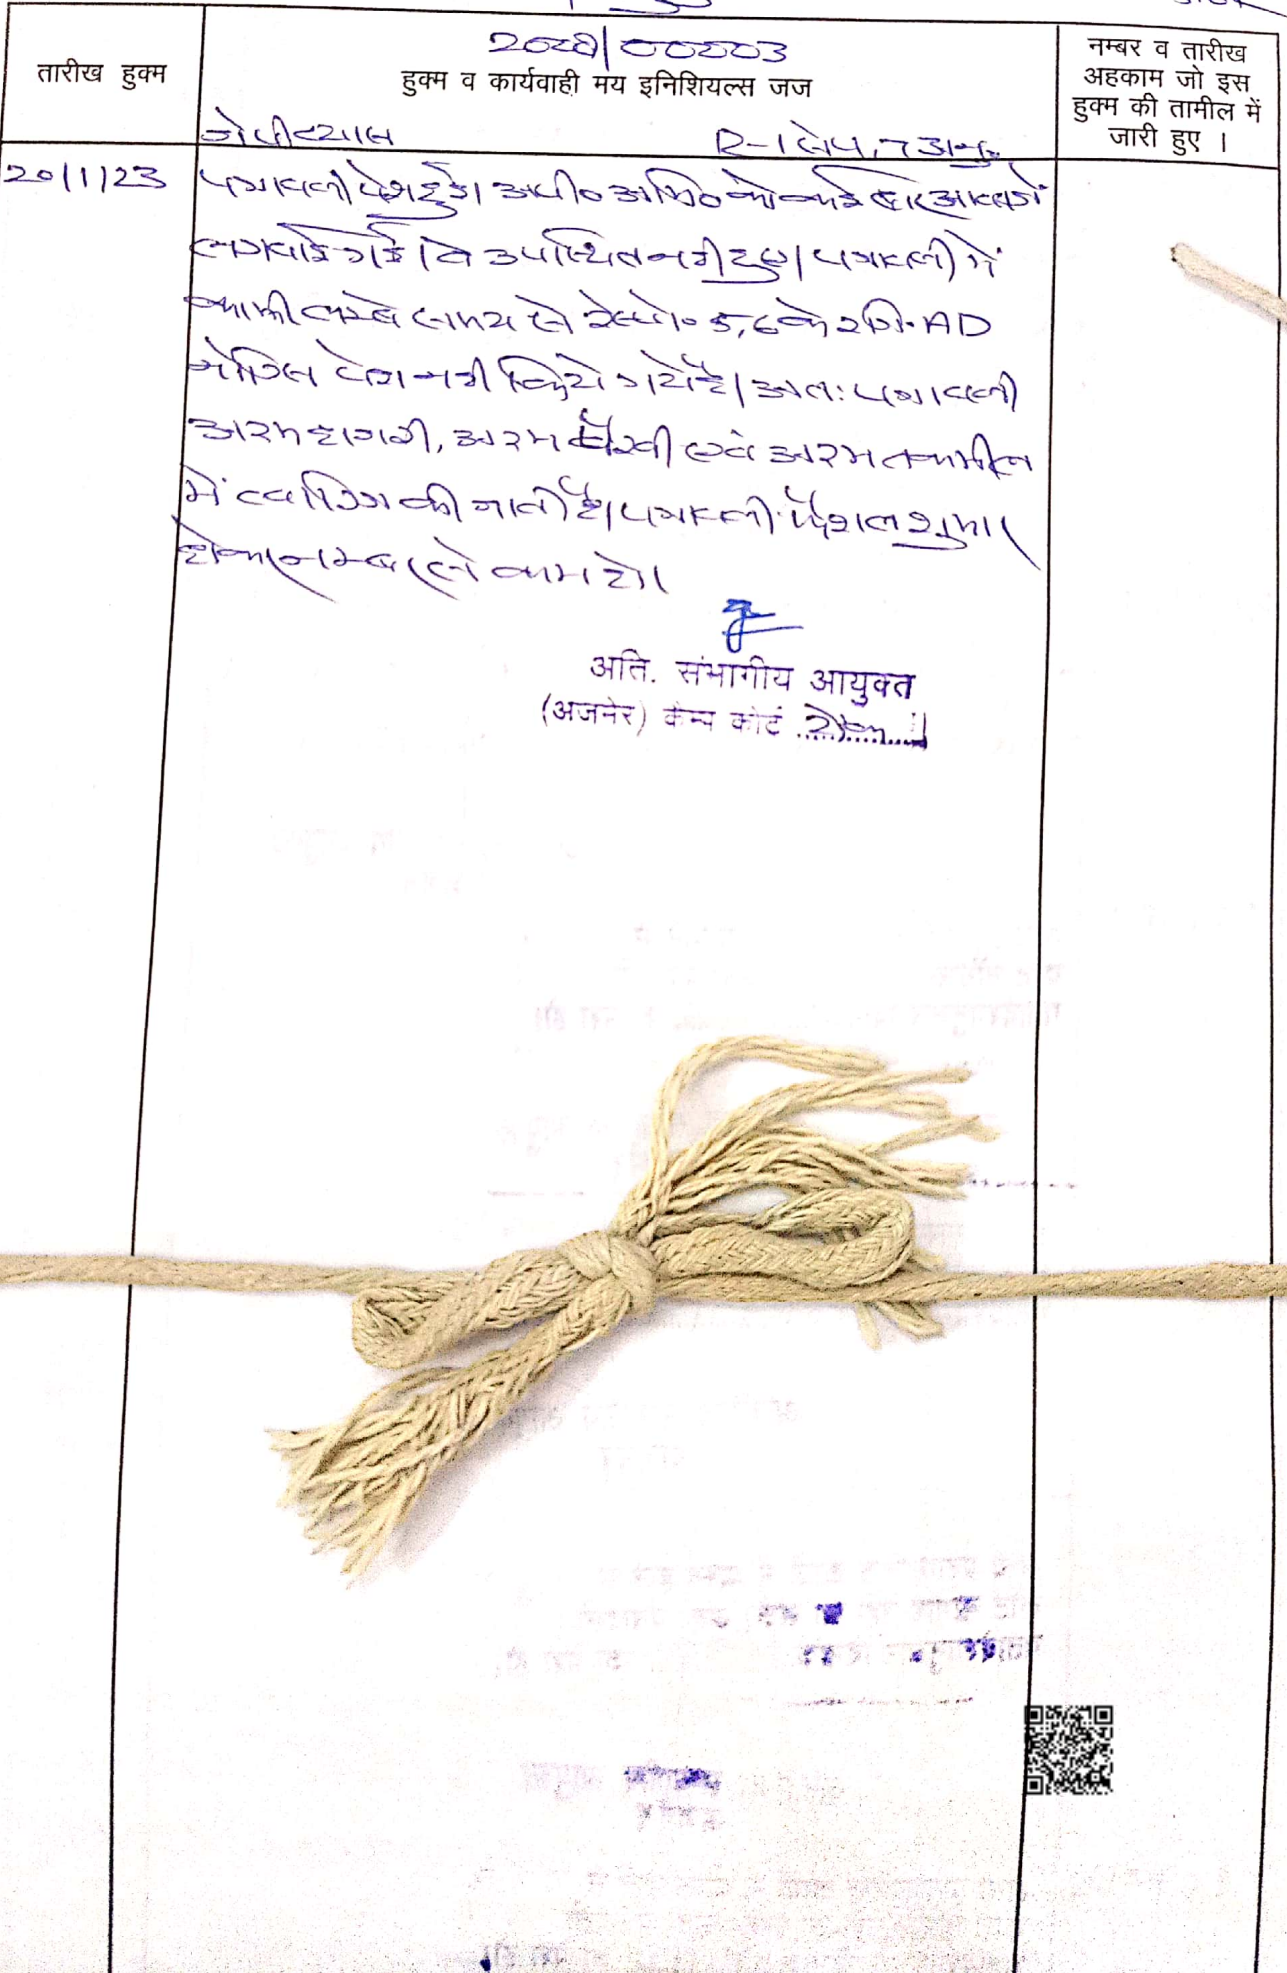 तारीख हुक्म
हुक्म व कार्यवाही मय इनिशियल्स जज
नम्बर व तारीख
अहकाम जो इस
हुक्म की तामील में
जारी हुए ।
जेपी व्यास
20/1/23
पत्रावली पेश हुई। अपी० अभि० को कई बार आवाजें
लगवाई गई। वे उपस्थित नहीं हुए। पत्रावली में
काफी लम्बे समय से रेस्पो० 5,6 के रजि. AD
नोटिस पेश नहीं किये गये है। अतः पत्रावली
अदम हाजरी, अदम पैरवी एवं अदम तकमील
में खारिज की जाती है। पत्रावली फैसल शुमार
होकर नम्बर से कम हो।
अति. संभागीय आयुक्त
(अजमेर) कैम्प कोर्ट